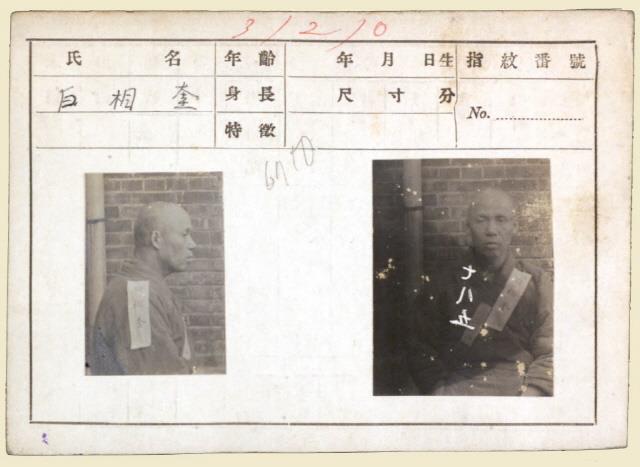 31210
氏名 年齡 年月日生 指紋番號
白相奎 身長 尺寸分 No.
特徵
6740
七八五